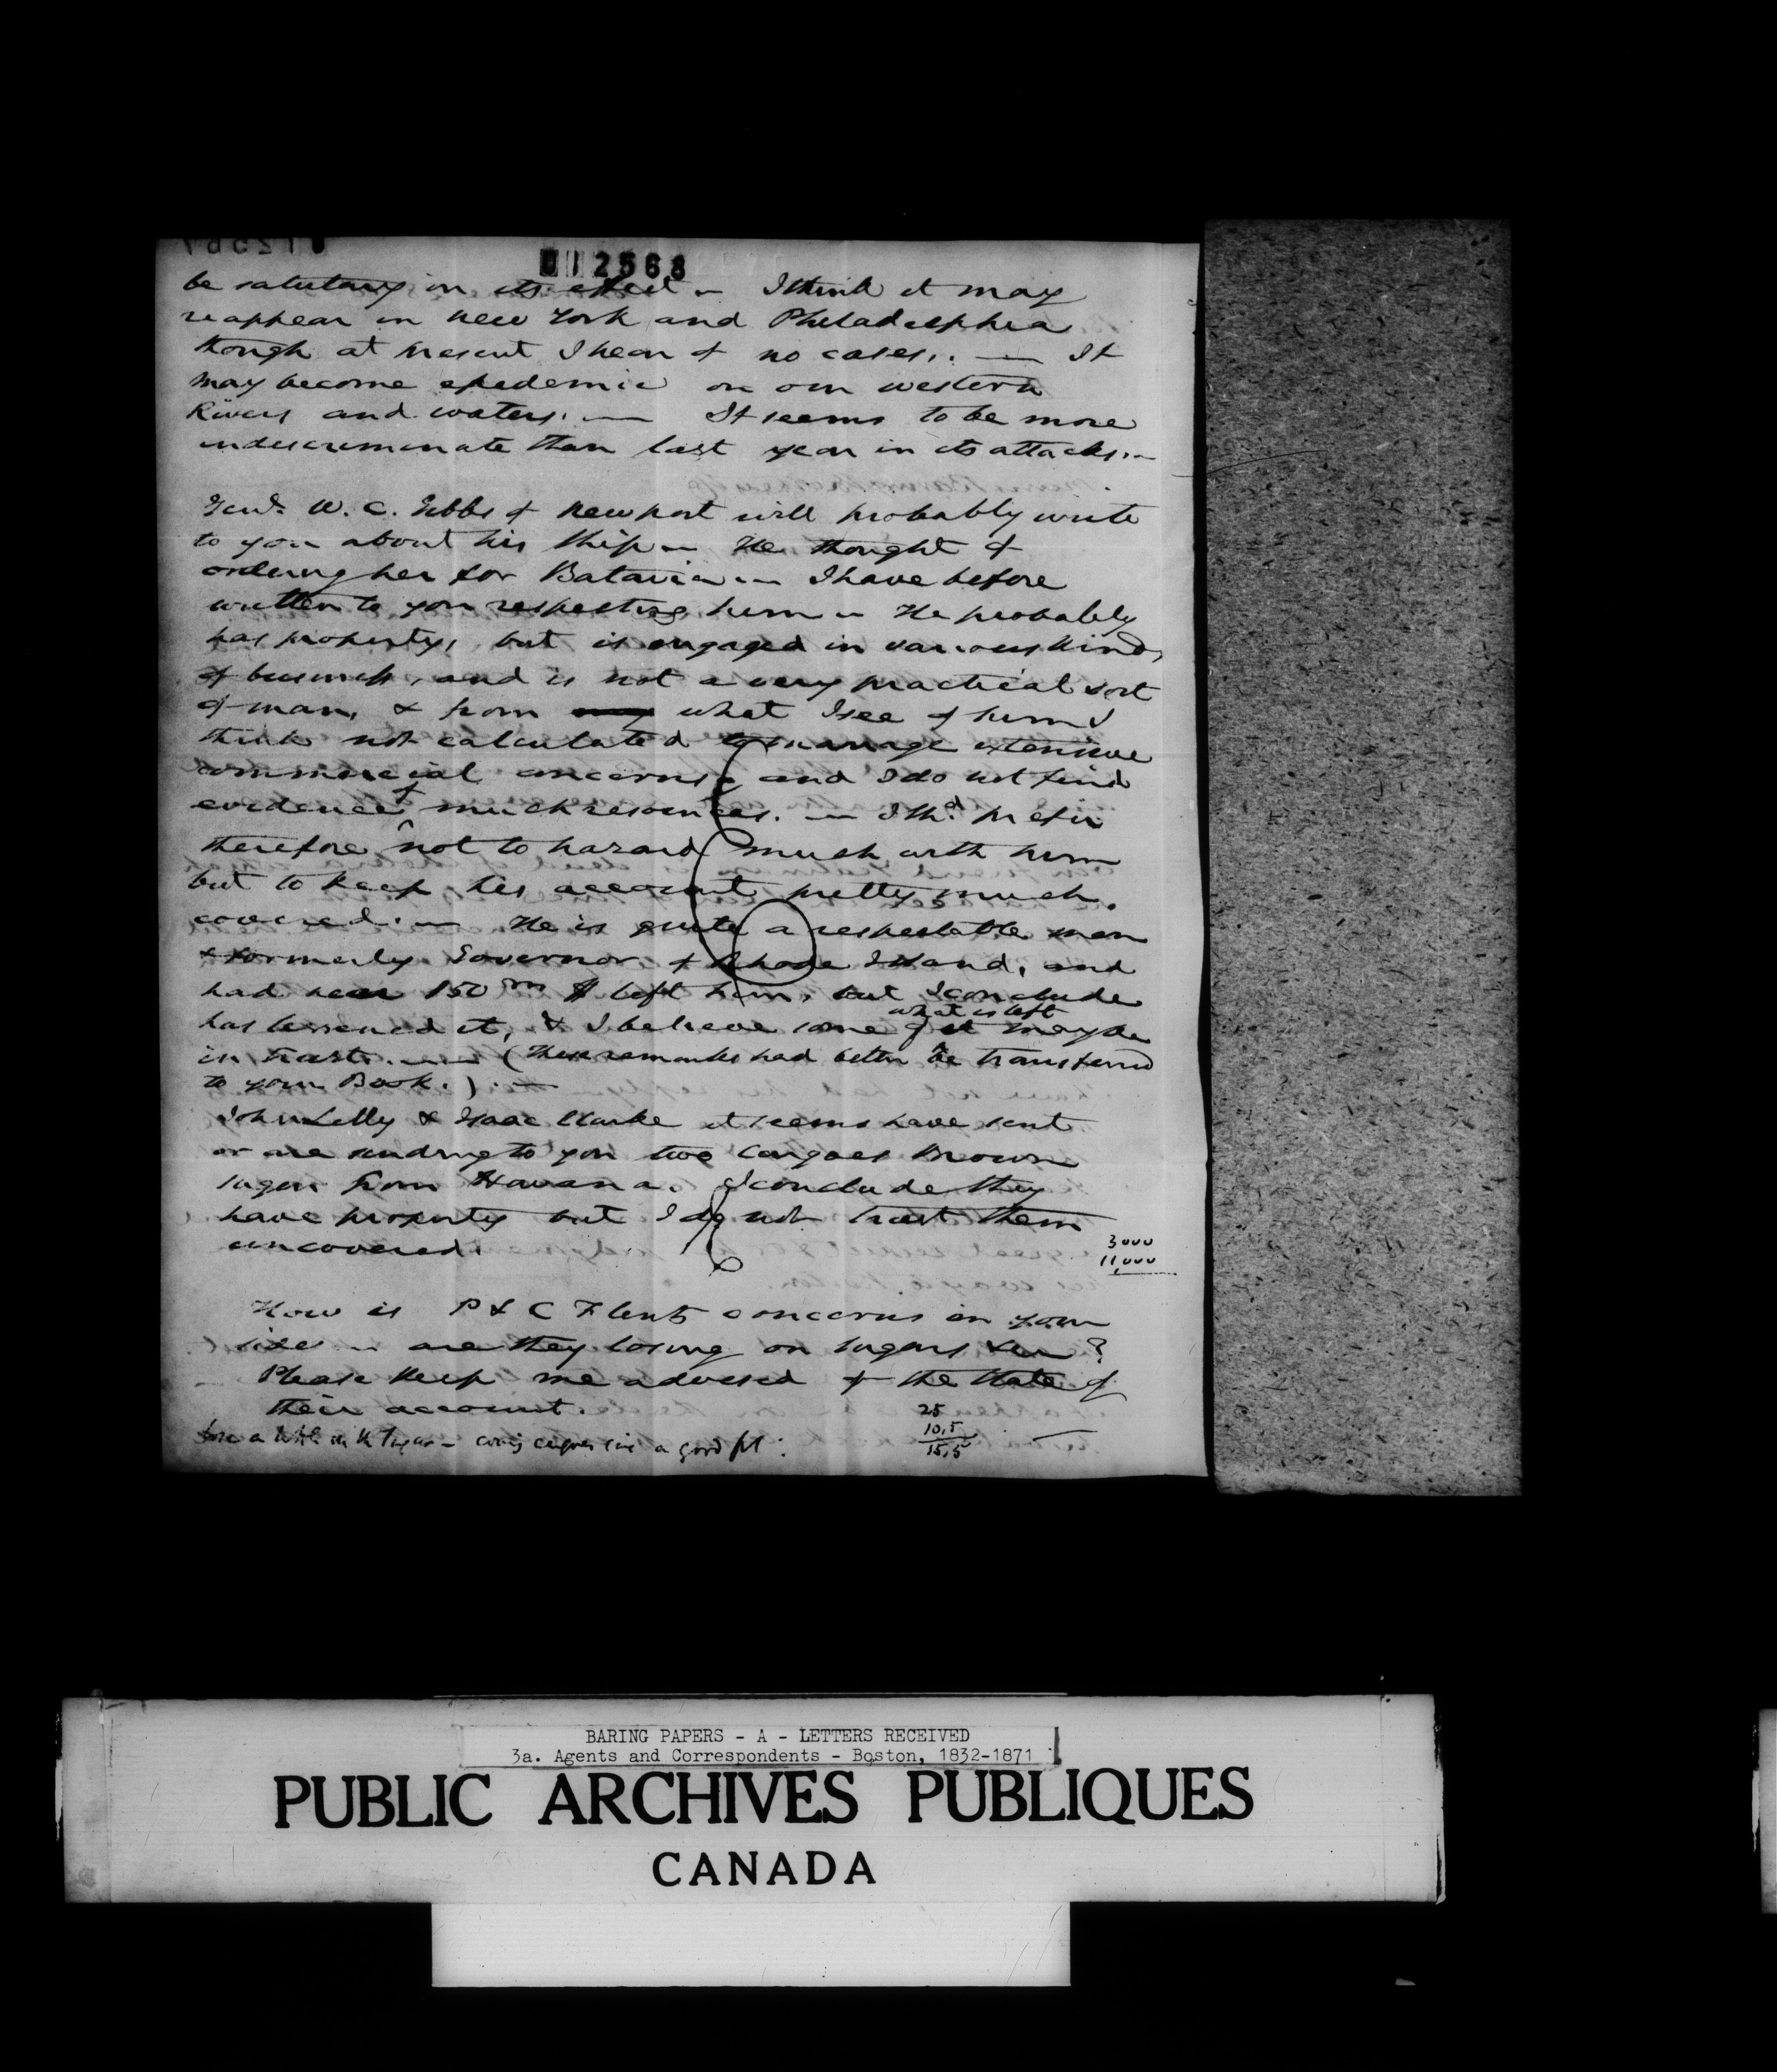 012568
be salutary in its effect – I think it may
reappear in New York and Philadelphia
though at present I hear of no cases. — It
may become epedemic on our western
Rivers and waters. — It seems to be more
indiscriminate than last year in its attacks. –
W. C. Gibbs of Newport will probably write
to you about his ship – He thought of
ordering her for Batavia – I have before
written to you respecting him – He probably
has property, but is engaged in various kinds
of business, and is not a very practical sort
of man, & from what I see of him I
think not calculated to manage extensive
commercial concerns, and I do not find
evidence of much resources. — I shd. prefer
therefore not to hazard much with him
but to keep his account pretty much
covered. — He is quite a respectable man
& formerly Governor of Rhode Island, and
had near 150 m $ left him, but I conclude
has lessened it, & I believe some of what is left may be
in trust. — (These remarks had better be transferred
to your Book.) —
John Lelly & Isaac Clarke it seems have sent
or are sending to you two Cargoes Brown
sugar from Havana. I conclude they
have property but I do not trust them
uncovered.
3000
11,000
How is P & C Flints concerns in your
side – are they losing on sugars &c ?
Please keep me advised of the state of
their account.
25
10,5
15,5
a little on the sugar – a good
BARING PAPERS - A - LETTERS RECEIVED
3a. Agents and Correspondents - Boston, 1832-1871
PUBLIC ARCHIVES PUBLIQUES
CANADA